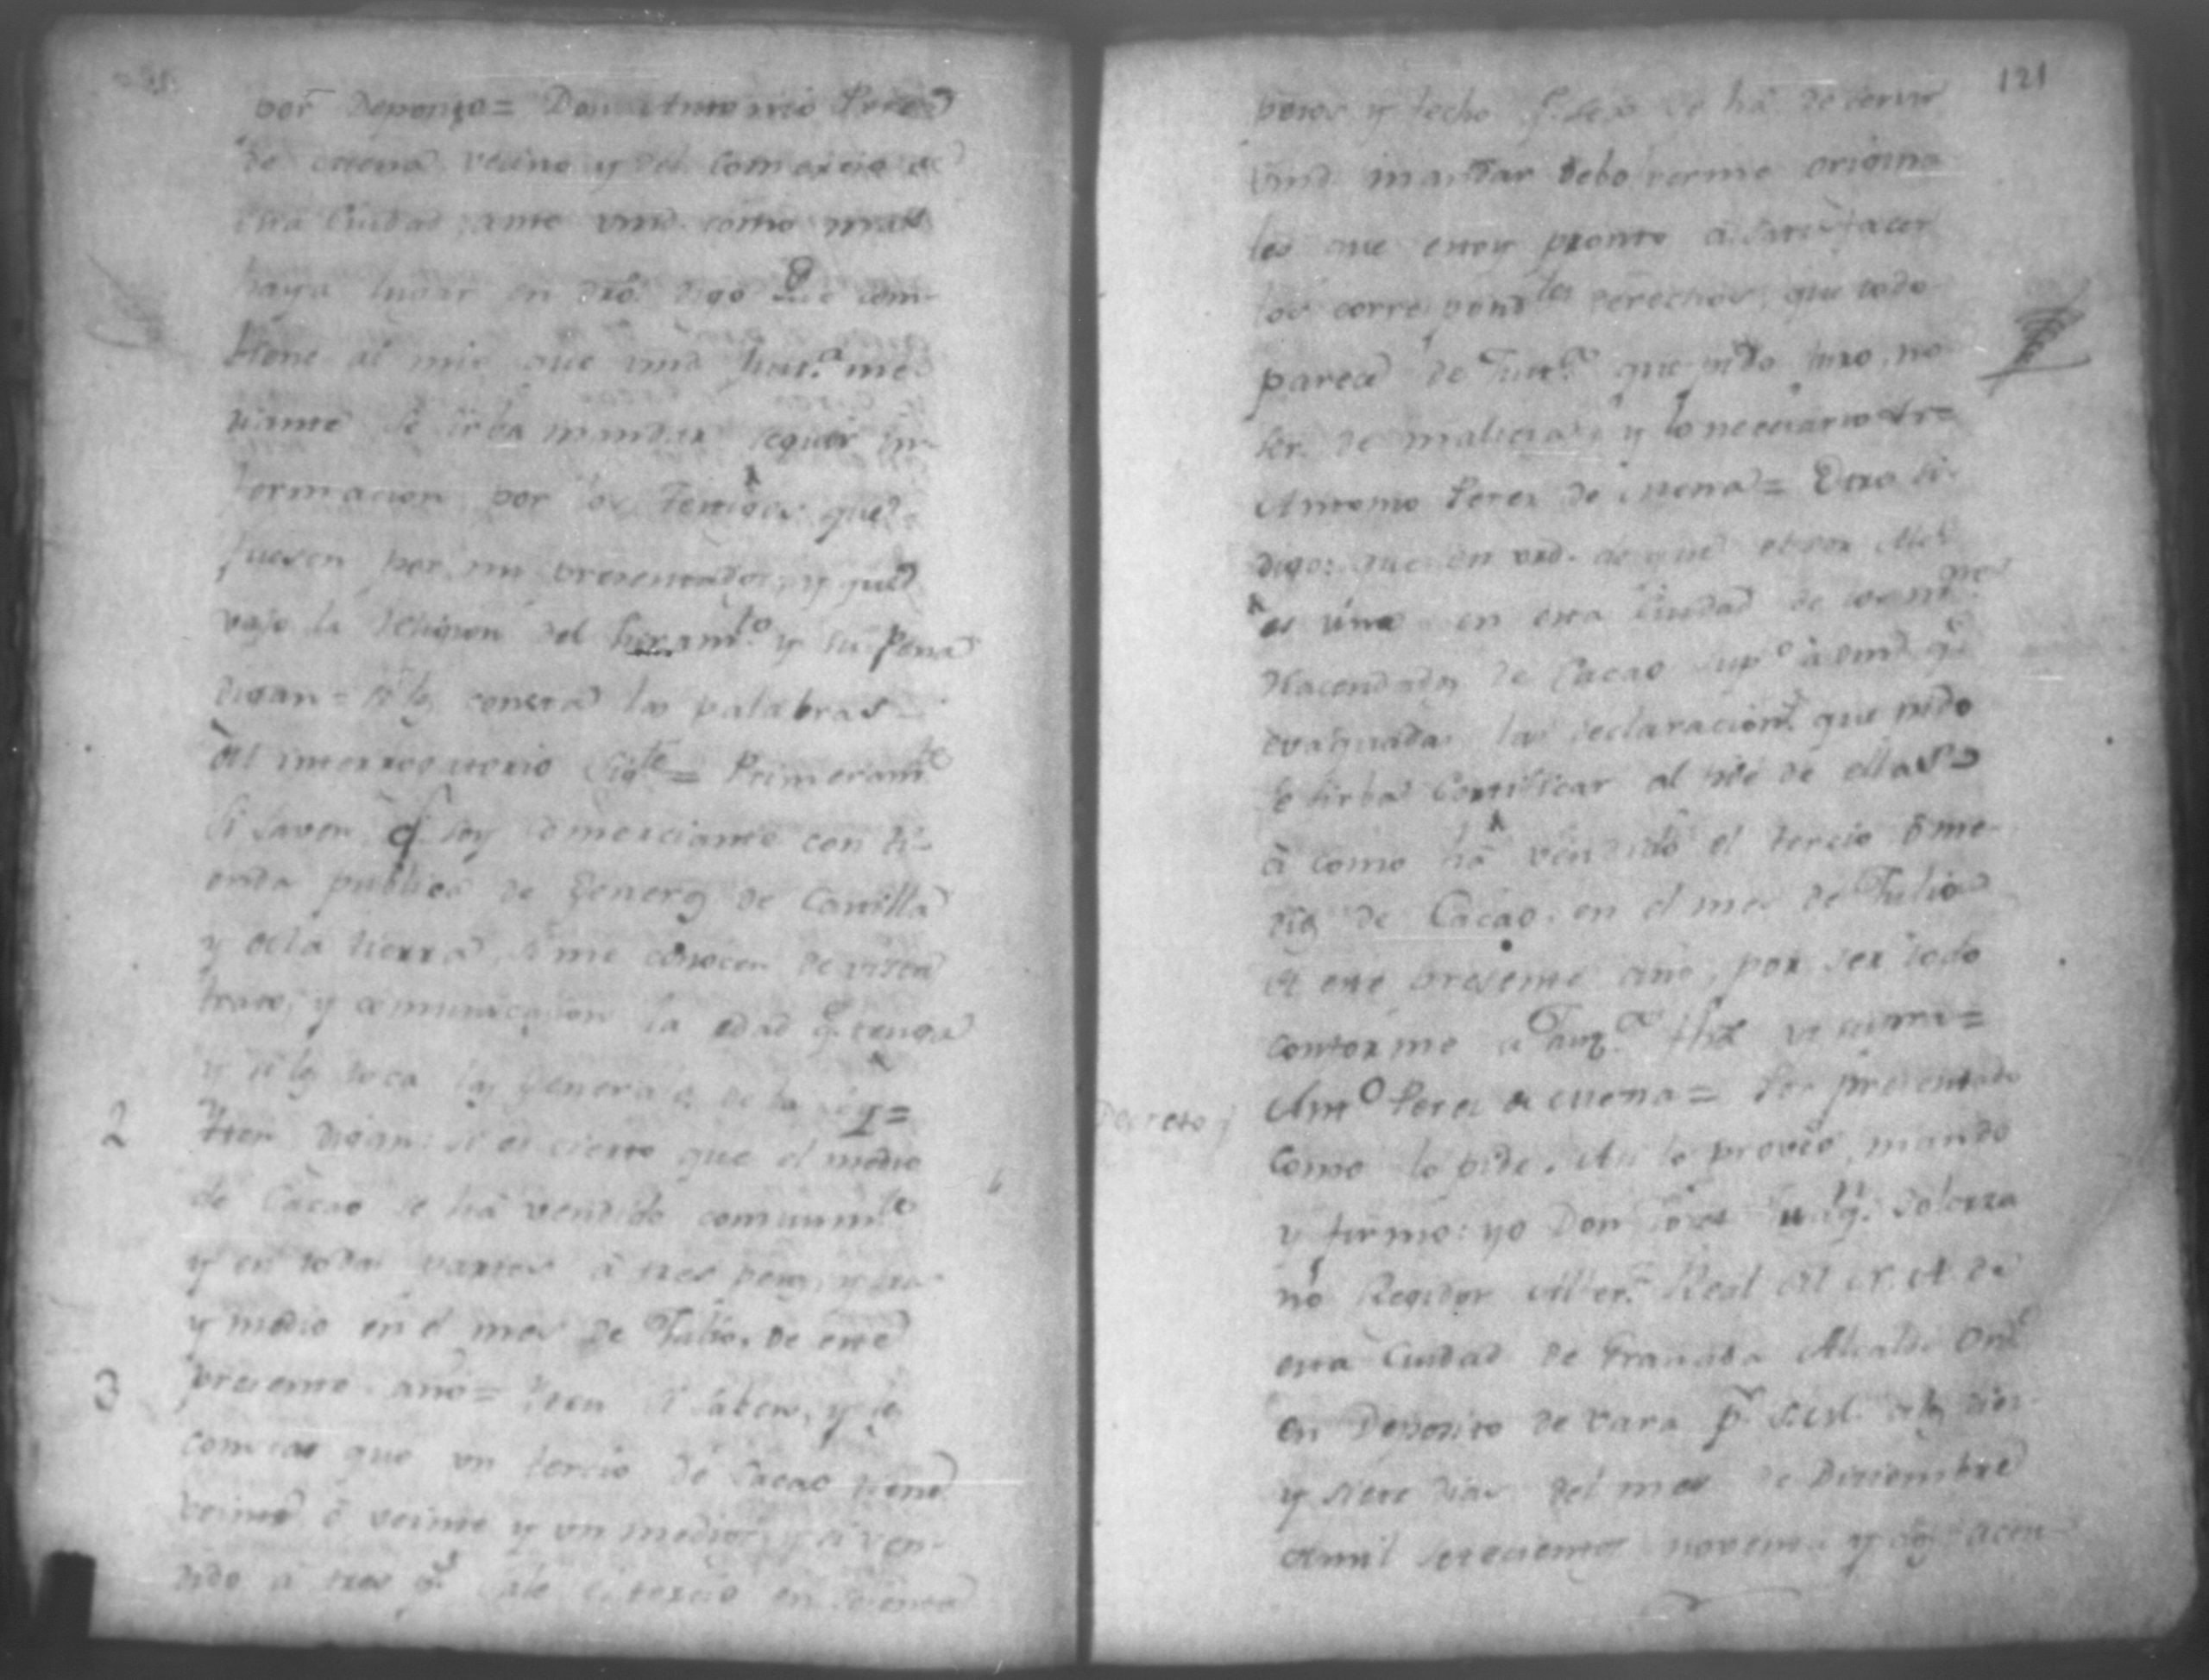 por Depongo = Don Antonio Perez
de Cuena vecino y del Comercio de
esta Ciudad, ante vmd. como mas
haya lugar en dro. digo Que com-
biene al mio que vmd Just.ª me-
diante se sirba mandar seguir In-
formacion por los Testigos que
fuesen por mi presentados, y que
vajo la religion del Juram.to y su Pena
digan = si les consta las palabras
del interrogatorio sig.te = Primeram.te
si saven q.e soy comerciante con ti-
enda publica de Generos de Castilla
y dela tierra, si me conocen de vista
trato, y comunicacion la edad q.e tenga
y si les toca las Generales de la Ley =
2 Iten digan: si es cierto que el medio
de Cacao se há vendido comunm.te
y en todas partes á tres pesos, y tres
y medio en el mes de Julio, de este
3 presente año = Iten si saben, y les
consta que un tercio de Cacao tiene
veinte ó veinte y un medios, y si ven-
dido á tres p.s sale el tercio en sesenta
121
pesos y fecho q.e sea se há de servir
vmd mandar debolverme origina
les que estoy pronto á satisfacer
los correspond.tes derechos, que todo
parece de Just.ª que pido juro, no
ser de malicia, y lo necesario etr.ª =
Antonio Perez de Cuena = Otro si
digo: que en vrd. de que
es uno en esta Ciudad de los
Hacendados de Cacao sup.co á vmd q.e
evaquadas las declaracion.s que pido
se sirba Certificar al pie de ellas
á como há vendido el tercio ó me-
dios de Cacao, en el mes de Julio
de este presente año, por ser todo
conforme a Just.ª fha ut supra =
Decreto
Ant.o Perez de Cuena = Por presentado
Como lo pide. Asi lo proveo, mando
y firmo: yo Don José Solorza
no Regidor Alfer.z Real del N. A. de
esta Ciudad de Granada Alcalde Ord.o
en Deposito de vara p.r S.M. a los dies
y siete dias del mes de Diciembre
de mil setecientos noventa y